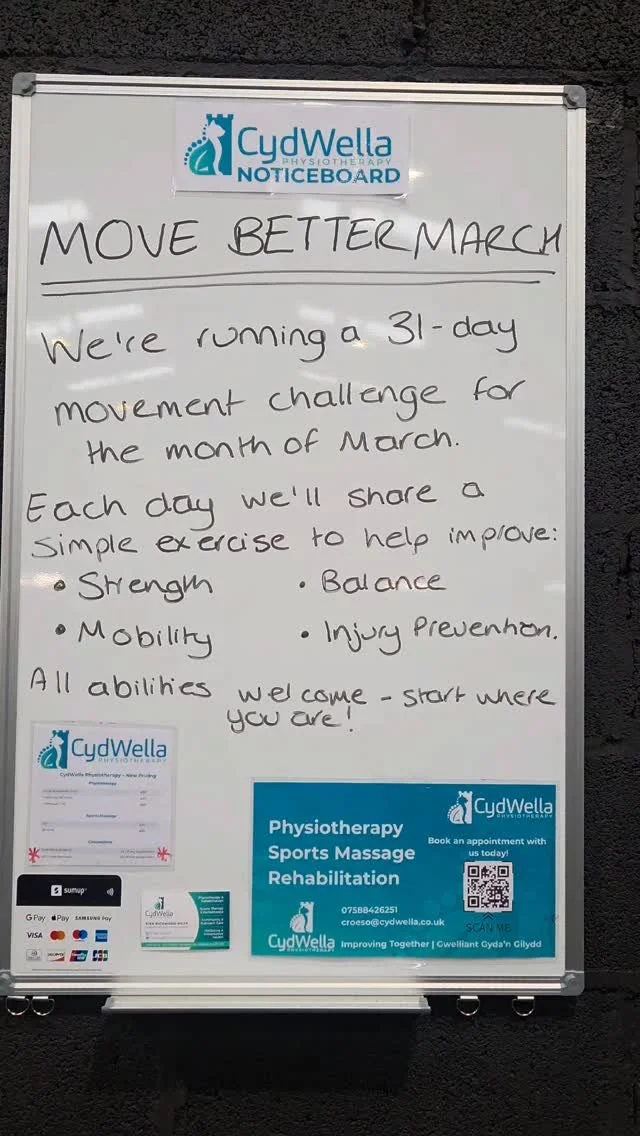 CydWella
PHYSIOTHERAPY
NOTICEBOARD
MOVE BETTER MARCH
We're running a 31-day
movement challenge for
the month of March.
Each day we'll share a
simple exercise to help improve:
• Strength • Balance
• Mobility • Injury Prevention.
All abilities welcome - start where
you are!
CydWella
PHYSIOTHERAPY
CydWella Physiotherapy - New Pricing
Physiotherapy
Sports Massage
sumup
G Pay Apple Pay SAMSUNG Pay
VISA
DISCOVER
JCB
CydWella
CydWella
PHYSIOTHERAPY
Physiotherapy
Sports Massage
Rehabilitation
Book an appointment with
us today!
SCAN ME
07588426251
croeso@cydwella.co.uk
CydWella
PHYSIOTHERAPY
Improving Together | Gwelliant Gyda'n Gilydd